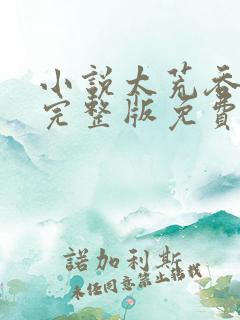 小說太荒吞
完整版免費
諾加利斯
未经同意禁止转载